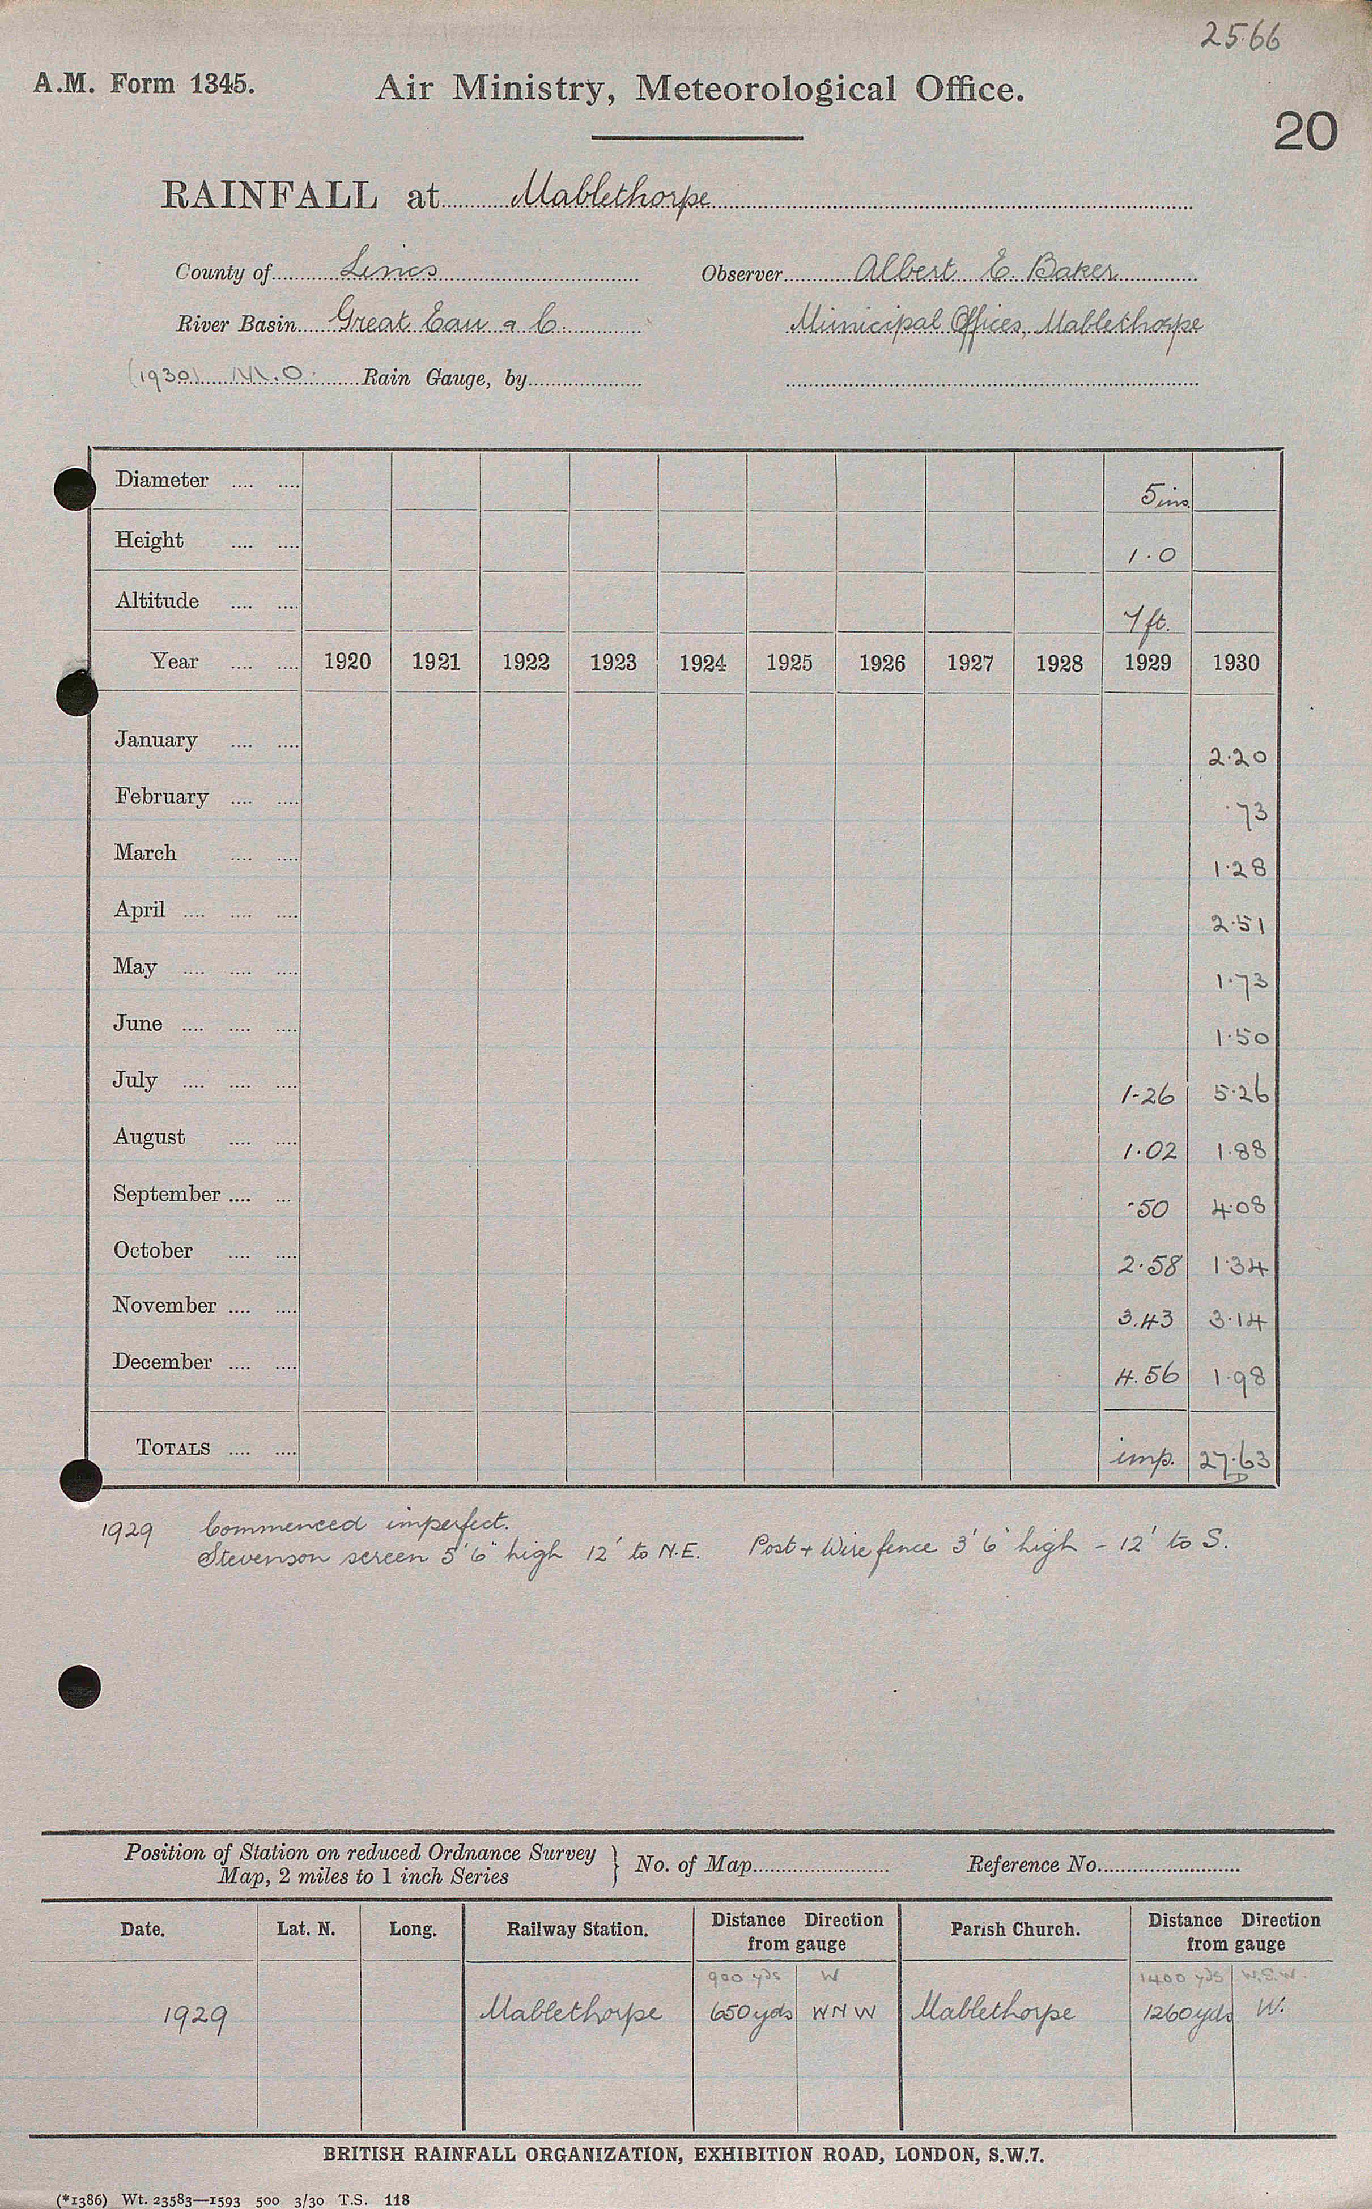 2566
A.M. Form 1345. Air Ministry, Meteorological Office.
20
RAINFALL at Mablethorpe
County of Lincs Observer Albert E. Baker
River Basin Great Eau & C. Municipal Offices, Mablethorpe
(1930) M.O. Rain Gauge, by
Diameter .... .... 5 ins.
Height .... .... 1.0
Altitude .... .... 7 ft.
Year .... .... 1920 1921 1922 1923 1924 1925 1926 1927 1928 1929 1930
January .... .... 2.20
February .... .... .73
March .... .... 1.28
April .... .... .... 2.51
May .... .... .... 1.73
June .... .... .... 1.50
July .... .... .... 1.26 5.26
August .... .... 1.02 1.88
September .... .... .50 4.08
October .... .... 2.58 1.34
November .... .... 3.43 3.14
December .... .... 4.56 1.98
TOTALS .... .... imp. 27.63
D
1929 Commenced imperfect.
Stevenson screen 5'6" high 12' to N.E. Post + Wire fence 3'6" high - 12' to S.
Position of Station on reduced Ordnance Survey
Map, 2 miles to 1 inch Series } No. of Map Reference No.
Date. Lat. N. Long. Railway Station. Distance Direction from gauge Parish Church. Distance Direction from gauge
900 yds W 1400 yds W.S.W.
1929 Mablethorpe 650 yds WNW Mablethorpe 1260 yds W.
BRITISH RAINFALL ORGANIZATION, EXHIBITION ROAD, LONDON, S.W.7.
(*1386) Wt. 23583—1593 500 3/30 T.S. 118